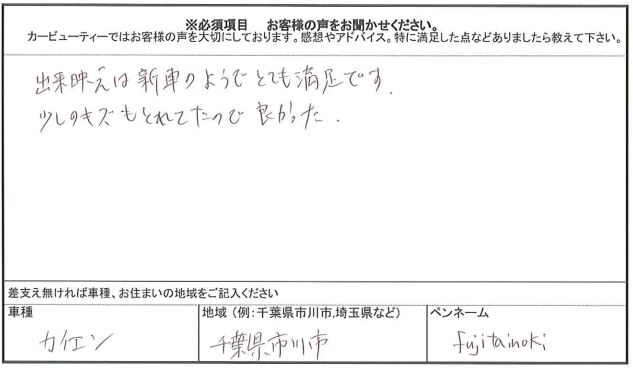 ※必須項目　お客様の声をお聞かせください。
カービューティーではお客様の声を大切にしております。感想やアドバイス。特に満足した点などありましたら教えて下さい。
出来映えは新車のようでとても満足です.
少しのキズもとれてたので良かった.
差支え無ければ車種、お住まいの地域をご記入ください
車種　地域（例：千葉県市川市,埼玉県など）　ペンネーム
カイエン　千葉県市川市　fujitainoki